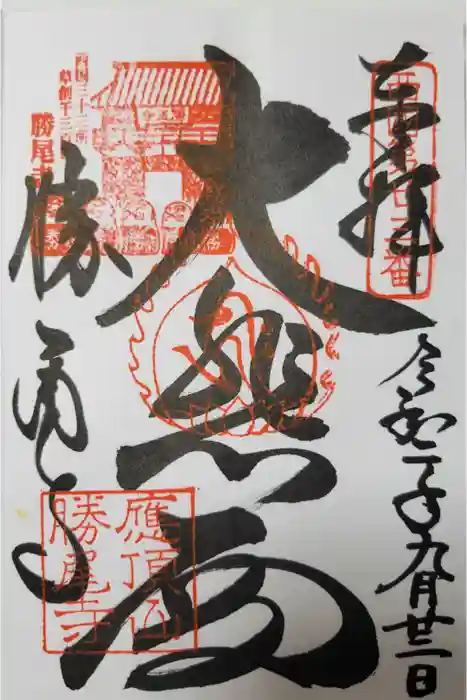 奉拝
西国第廿三番
令和
九月廿
日
大悲
西国三十三所
草創千三百年
勝尾寺
勝尾寺
應頂山
勝尾寺